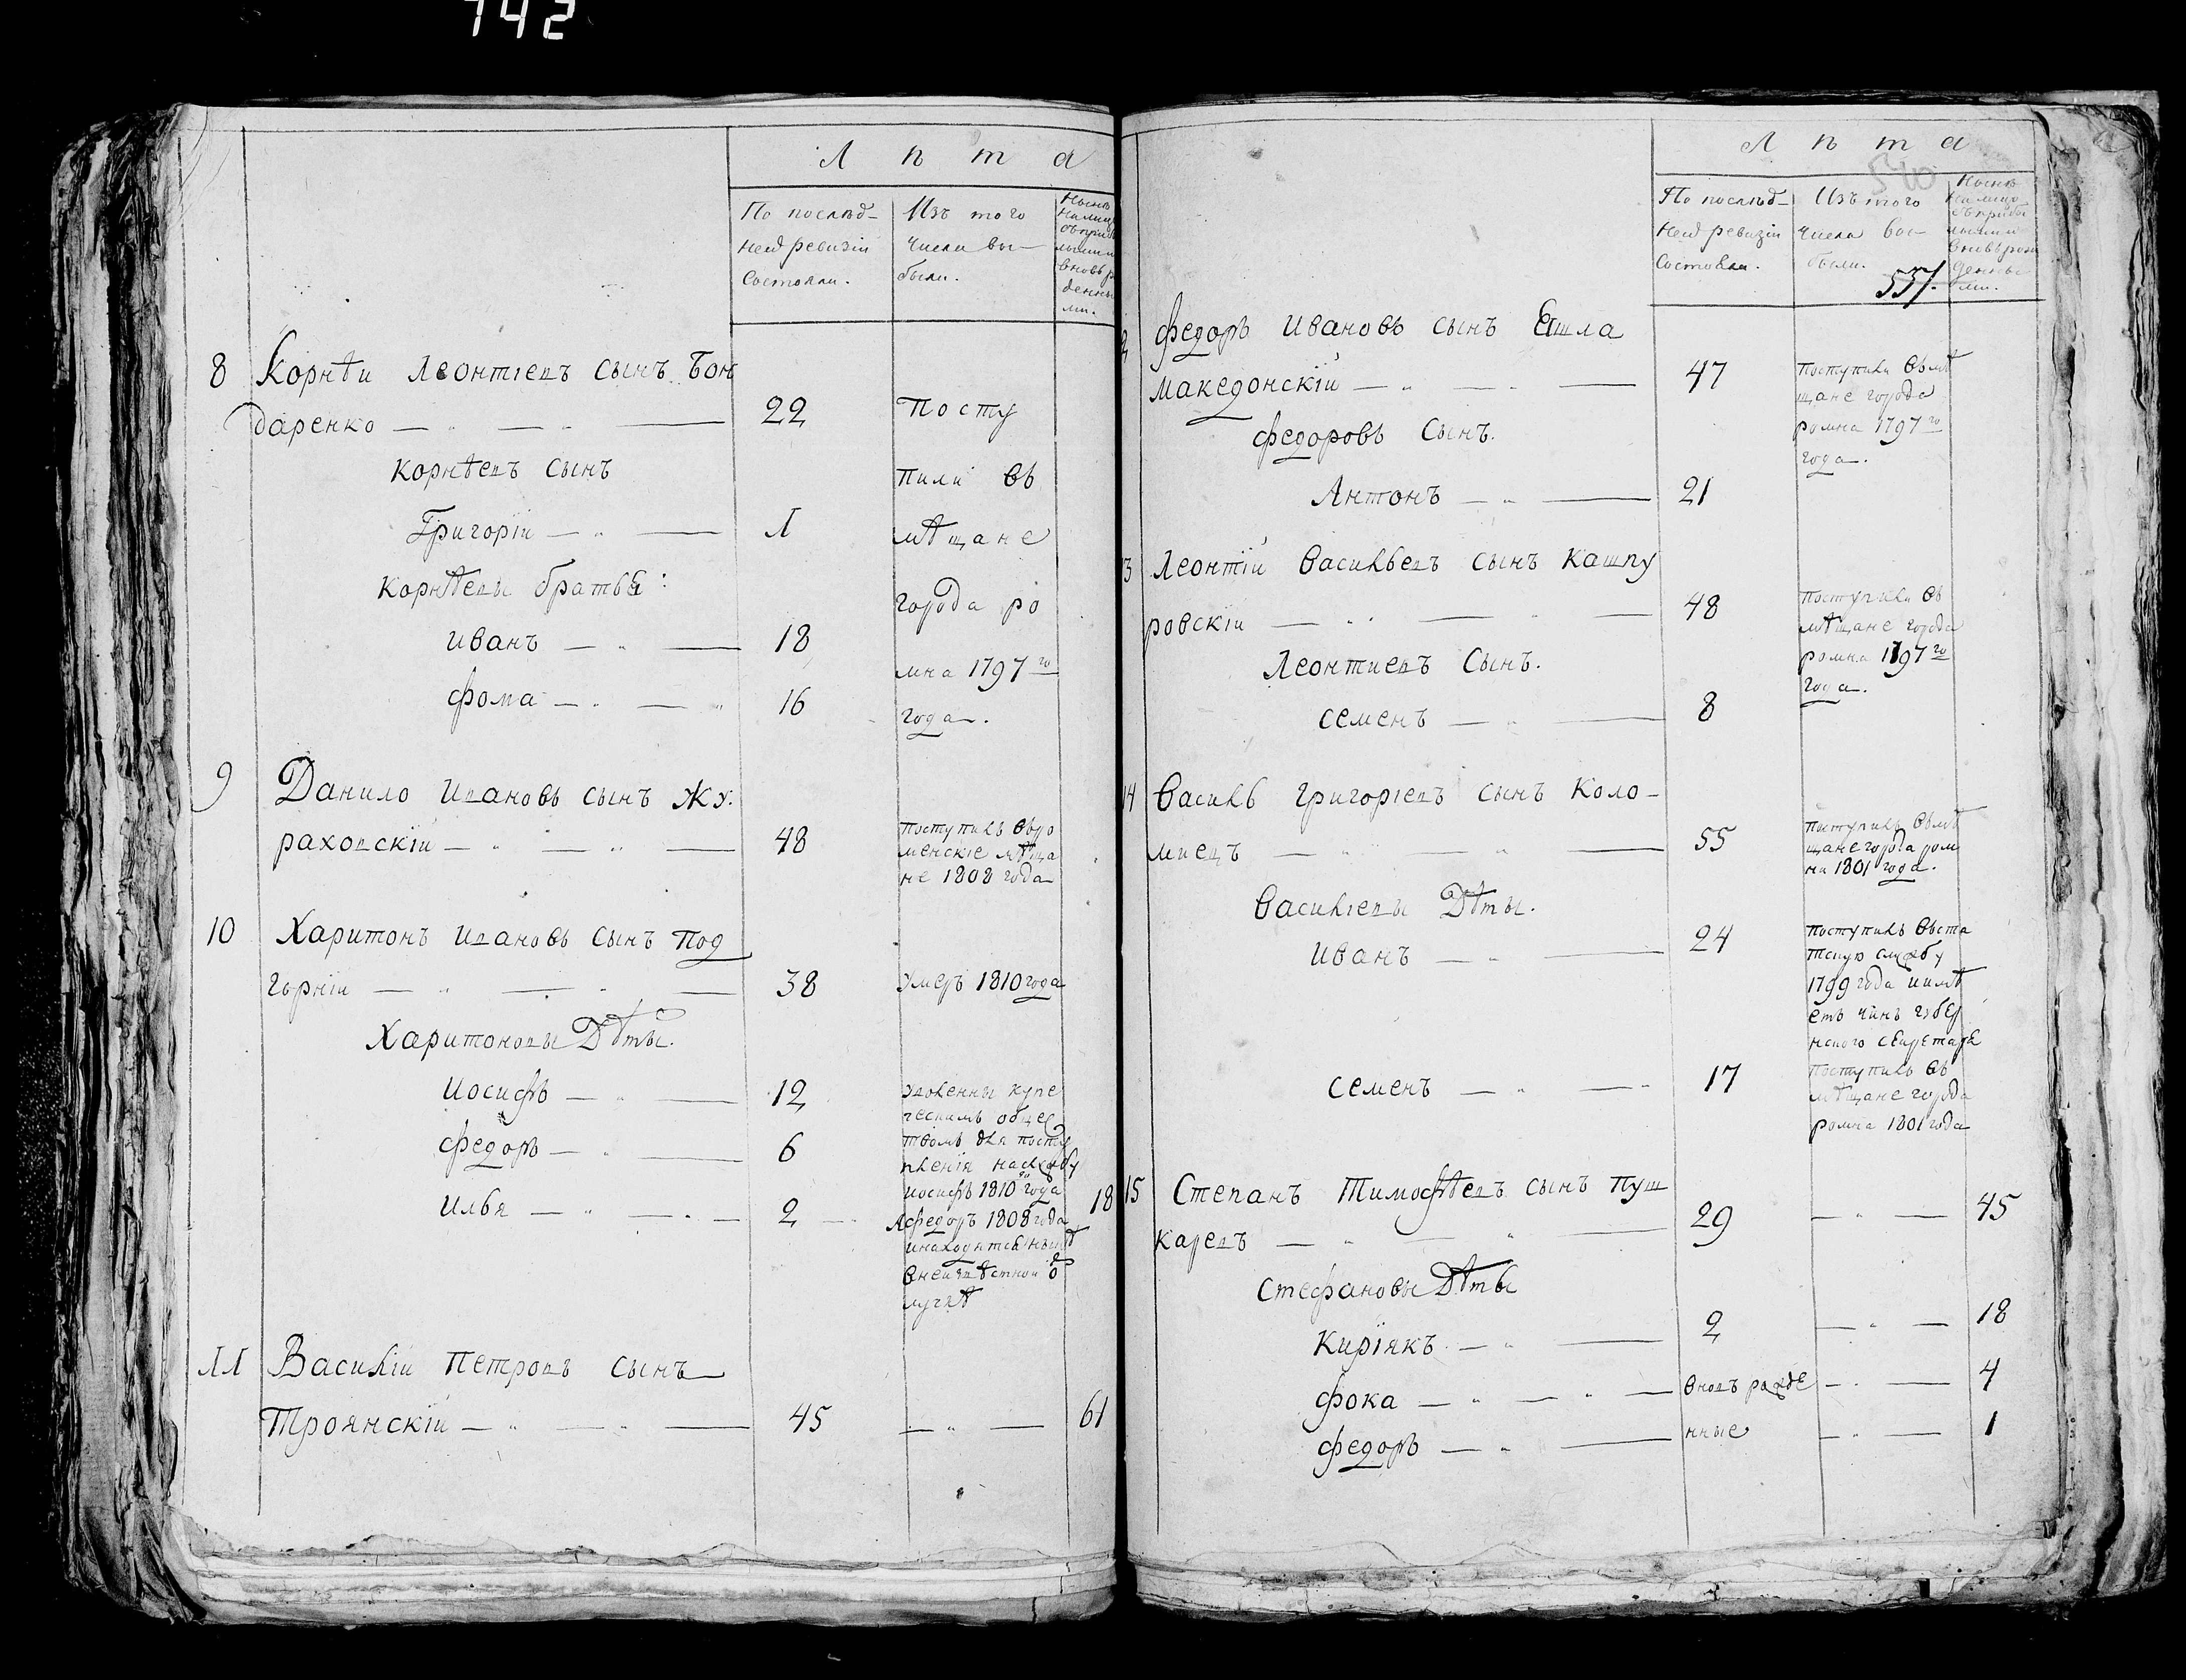 742
Лѣта
По послѣд-
ней ревизіи
Состояли.
Изъ того
Числа вы-
были.
Нынѣ
Налицо
съприбы
лыми и
вновь р
денны
ми.
8 Корнѣи Леонтіевъ сынъ Бон
даренко — 22 Посту
Корнѣевъ сынъ
пили въ
Григоріи — 1 мѣщане
Корнѣевы братья:
города ро
иванъ — 18
мна 1797го
фома — 16
года.
9 Данило ивановъ сынъ жу.
раховскіи — 48 поступилъ въро
менскіе мѣща
не 1808 года
10 Харитонъ ивановъ сынъ под
горніи — 38 умеръ 1810 года
Харитоновы Дѣты.
иосифъ — 12
федоръ — 6
илья — 2 — 18
уволенны купе
ческимъ общес
твомъ для посту
пленія наслужбу
иосифъ 1810го года
Афедоръ 1808 года
инаходятся нынѣ
внеизвѣстной о
лучкѣ
11 Василіи Петровъ сынъ
Троянскій — 45 — 61
Лѣта
540
По послѣд-
ней ревизіи
Состояли.
Изъ того
Числа вы-
были.
531.
Нынѣ
налицо
съприбы
лыми и
вновь рож
денны
ми.
федоръ ивановъ сынъ Ешла
македонскій — 47 поступили въмѣ
щане города
ромна 1797го
года.
федоровъ сынъ.
Антонъ — 21
13 Леонтій Васильевъ сынъ кашпу
ровскіи — 48 поступили въ
мѣщане города
ромна 1797го
года.
Леонтиевъ Сынъ.
семенъ — 8
14 Василь григоріевъ сынъ коло-
миецъ — 55 поступилъ въмѣ
щане города ром
на 1801 года.
Василіевы Дѣты.
иванъ — 24 поступилъ въста
тскую службу
1799 года иимѣ
етъ чинъ губер
нского секретаря
семенъ — 17 поступилъ въ
мѣщане города
ромна 1801 года
15 Степанъ Тимофѣевъ сынъ пуш
каревъ — 29 — 45
Стефановы Дѣты
Кирїякъ — 2 — 18
фока — вновъ рожде — 4
федоръ — нные — 1